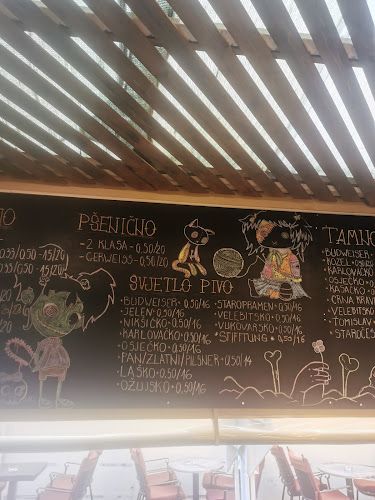 PŠENIČNO
- Z KLASA - 0,50/20
- GERWEISS - 0,50/20
0,33/0,50 - 15/20
SVJETLO PIVO
• BUDWEISER • 0,50/16
• JELEN • 0,50/16
• NIKŠIĆKO • 0,50/16
• KARLOVAČKO • 0,50/16
• OSJEČKO • 0,50/16
• PAN/ZLATNI/PILSNER • 0,50/14
• LAŠKO • 0,50/16
• OŽUJSKO • 0,50/16
• STAROPRAMEN • 0,50/16
• VELEBITSKO • 0,50/16
• VUKOVARSKO • 0,50/16
• STIFFTUNG • 0,50/16
TAMNO
• BUDWEISER
• KOZEL
• KARLOVAČKO
• OSJEČKO
• KASAČKO
• CRNA KRAV
• VELEBITSK
• TOMISLAV
• STAROČES